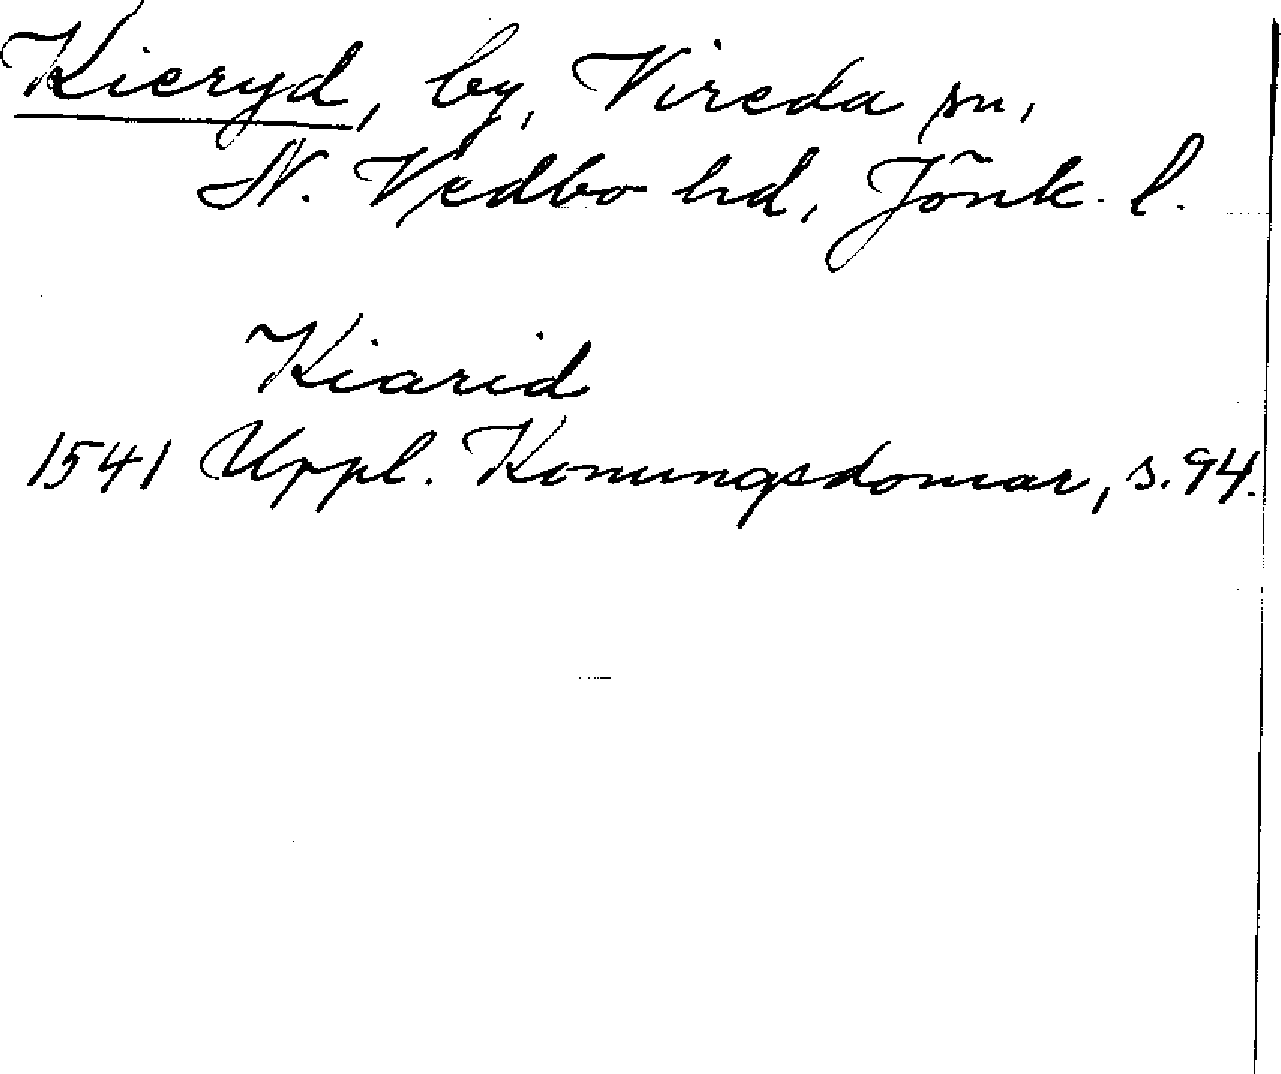 Kieryd, by, Vireda sn,
N. Vedbo hd, Jönk. l.
Kiarid
1541 Uppl. Konungsdomar, s. 94.